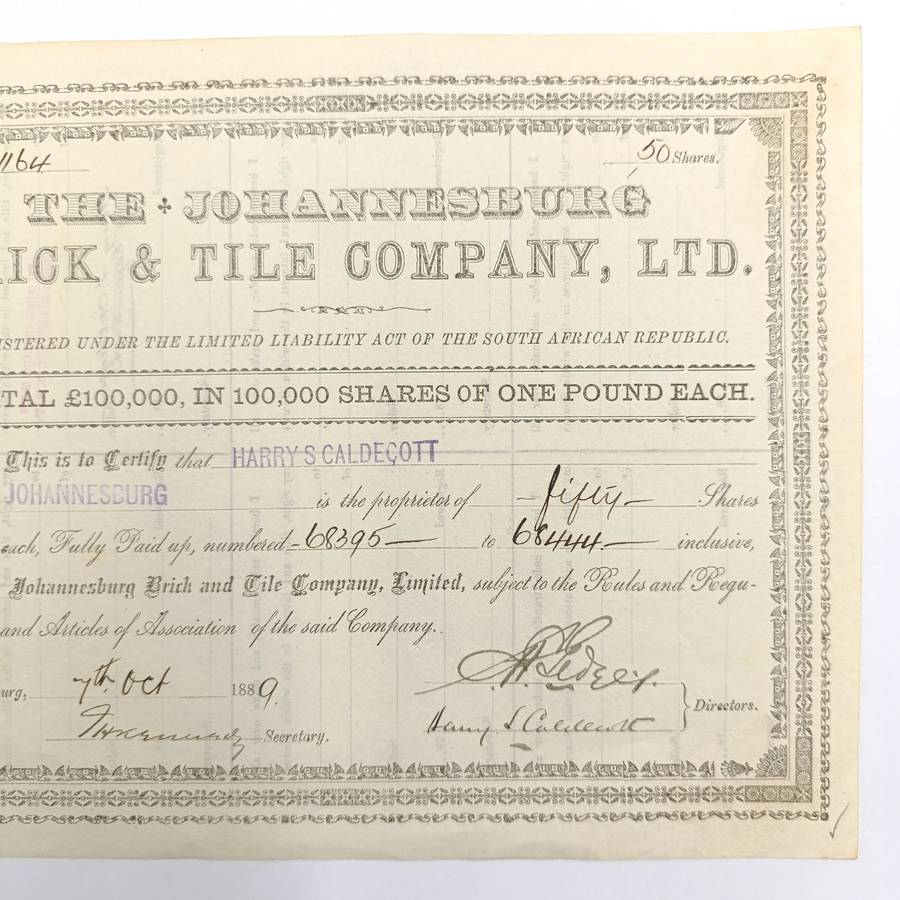 1164
50 Shares.
THE JOHANNESBURG
RICK & TILE COMPANY, LTD.
ISTERED UNDER THE LIMITED LIABILITY ACT OF THE SOUTH AFRICAN REPUBLIC.
TAL £100,000, IN 100,000 SHARES OF ONE POUND EACH.
This is to Certify that HARRY S CALDECOTT
JOHANNESBURG is the proprietor of - fifty - Shares
each, Fully Paid up, numbered - 68395 - to 68444. - inclusive,
Johannesburg Brick and Tile Company, Limited, subject to the Rules and Regu-
and Articles of Association of the said Company.
urg, 7th Oct 1889.
Secretary.
Harry S Caldecott
Directors.